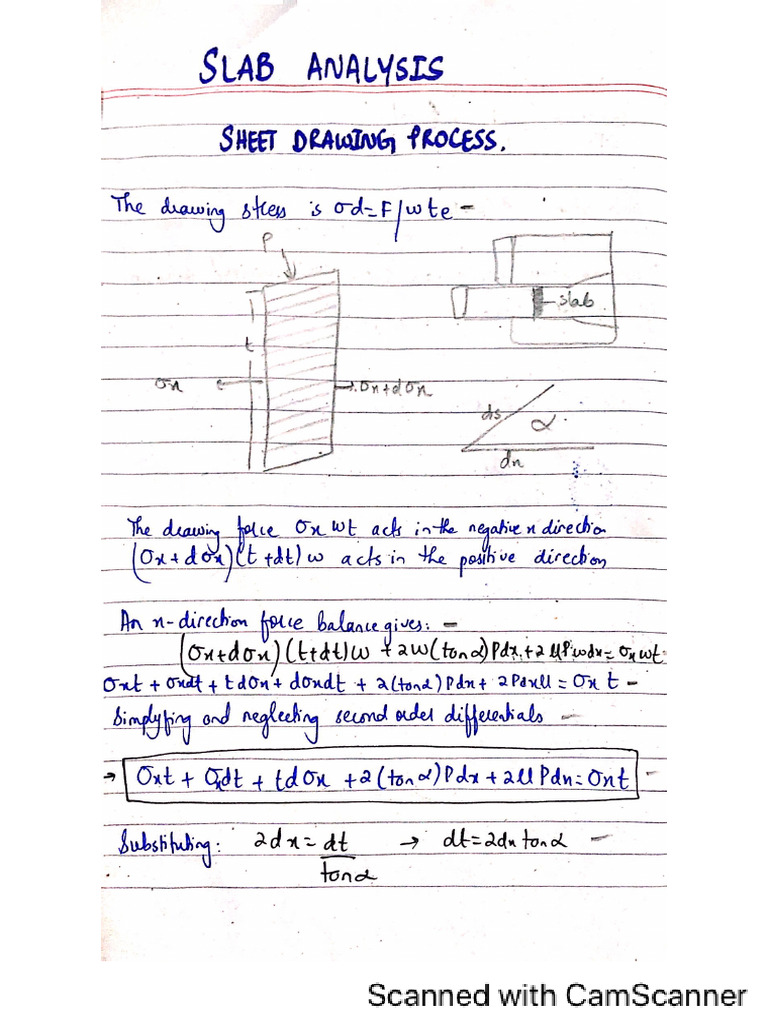 SLAB ANALYSIS
SHEET DRAWING PROCESS.
The drawing stress is σd=F/wte -
P
slab
t
σx
σx+dσx
ds
α
dx
The drawing force σx wt acts in the negative x direction
(σx+dσx)(t+dt)w acts in the positive direction
An x-direction force balance gives: -
(σx+dσx)(t+dt)w +2w(tanα)Pdx+2μPwdx=σxwt
σxt + σxdt + tdσx + dσxdt + 2(tanα)Pdx+ 2Pdxμ = σx t -
Simplyfing and neglecting second order differentials -
→ σxt + σxdt + tdσx +2(tanα)Pdx+2μPdx=σxt -
Substituting: 2dx=dt/tanα → dt=2dx tanα -
Scanned with CamScanner